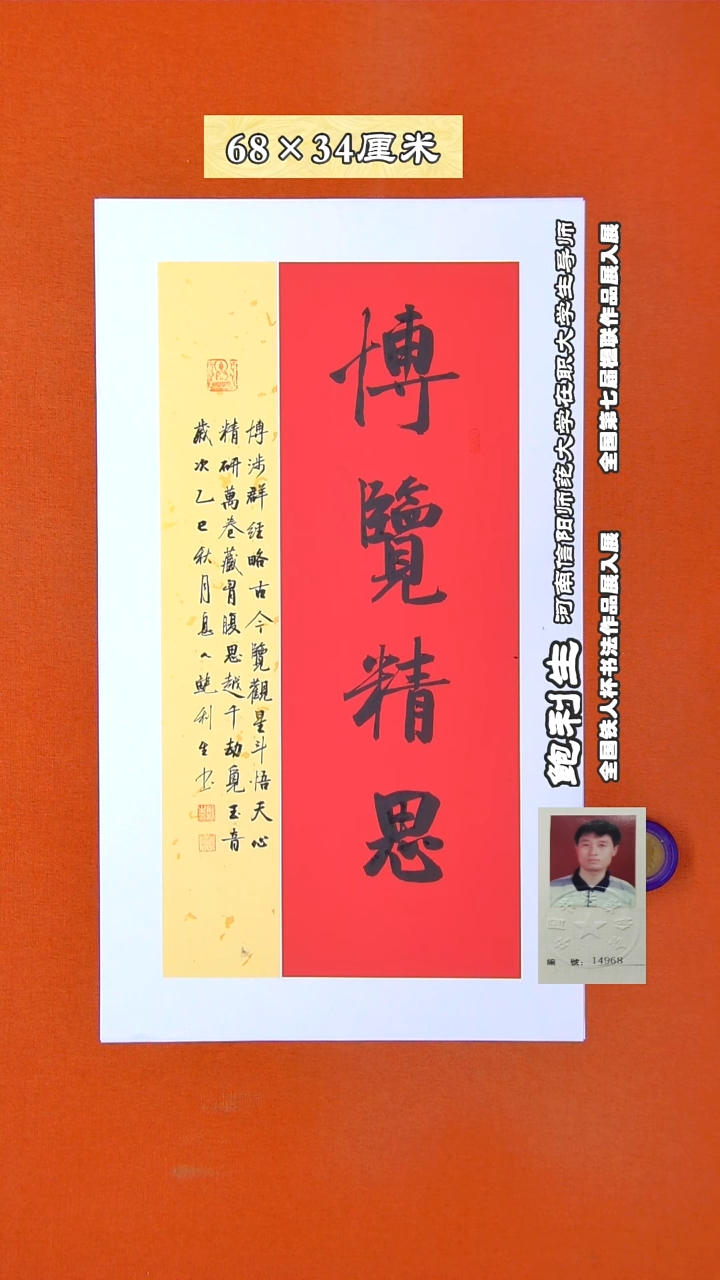 68×34厘米
博覽精思
博涉群經略古今覽觀星斗悟天心
精研萬卷藏胷腹思越千劫覓玉音
歲次乙巳秋月息
鮑利生书
鲍利生
河南信阳师范大学在职大学生导师
全国第七届楹联作品展入展
全国铁人杯书法作品展入展
編 號：14968